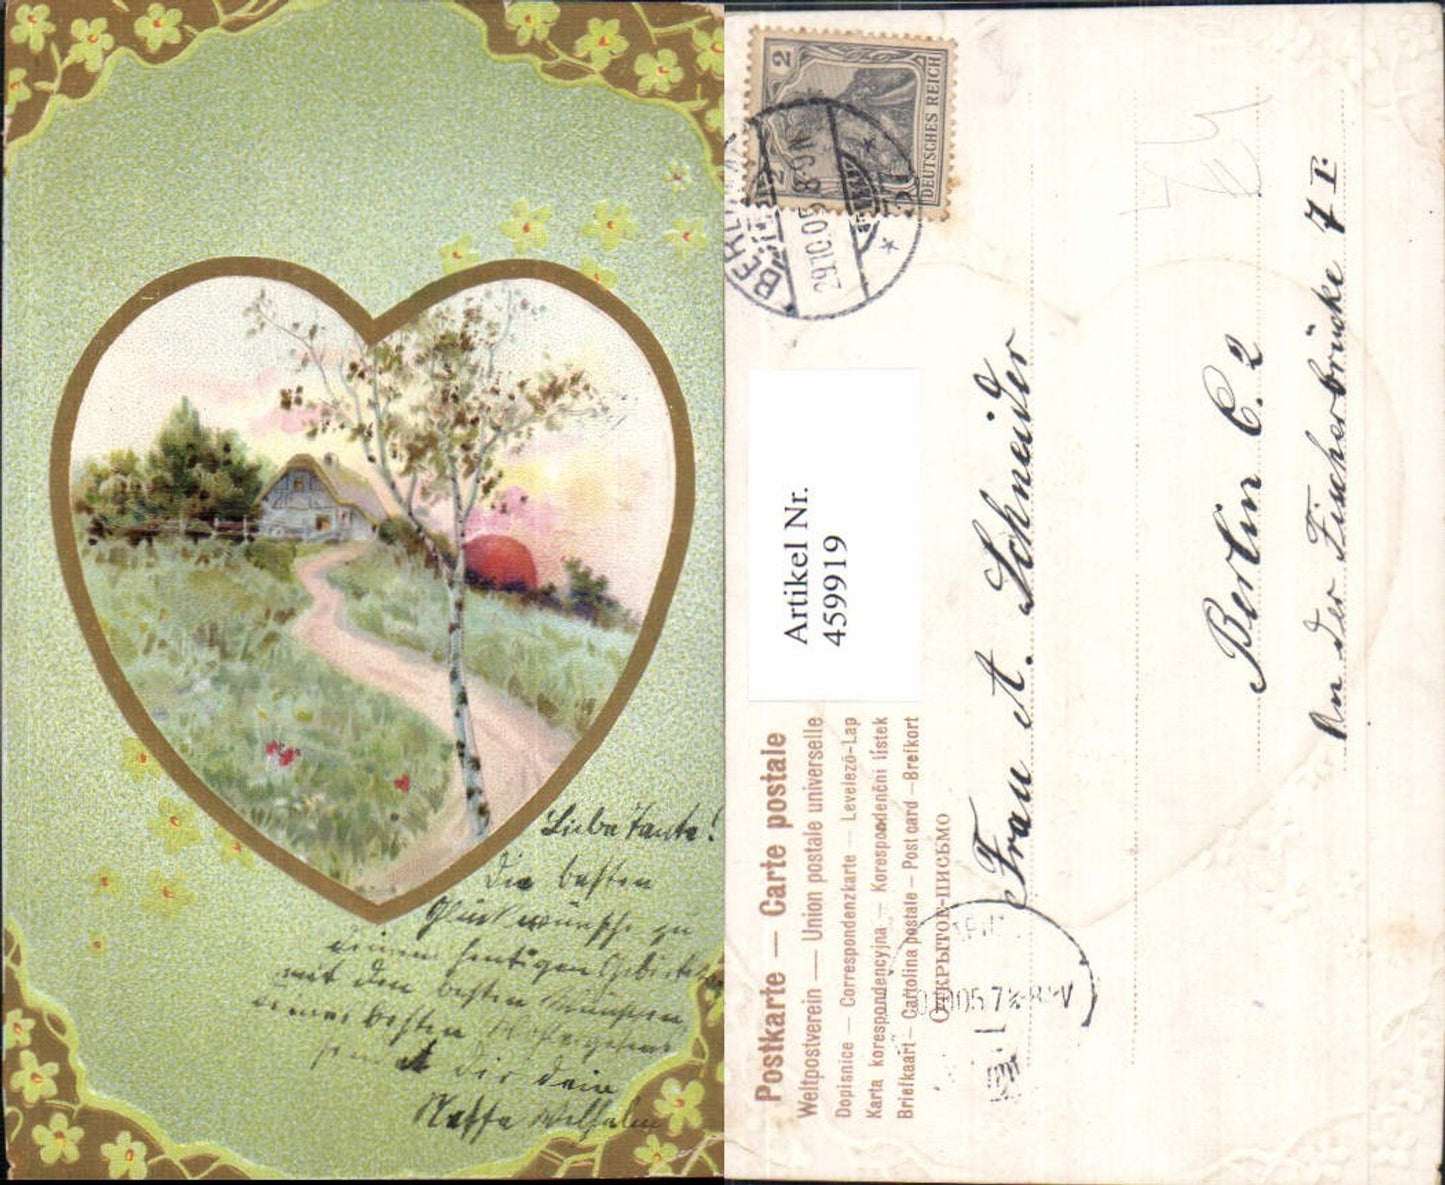 Liebe Tante!
Die besten
Glückwünsche zu
deinem heutigen
mit den besten Wünschen
besten
sendet Dir dein
Neffe Wilhelm
2
DEUTSCHES REICH
BERLIN
29.10.05 8-9N
Artikel Nr.
459919
Postkarte — Carte postale
Weltpostverein — Union postale universelle
Dopisnice — Correspondenzkarte — Levelező-Lap
Karta korespondencyjna — Korespondenční lístek
Briefkaart — Cartolina postale — Post card — Brefkort
Открытое-письмо
Frau A. Schneider
Berlin C. 2
An der Fischerbrücke 7 I.